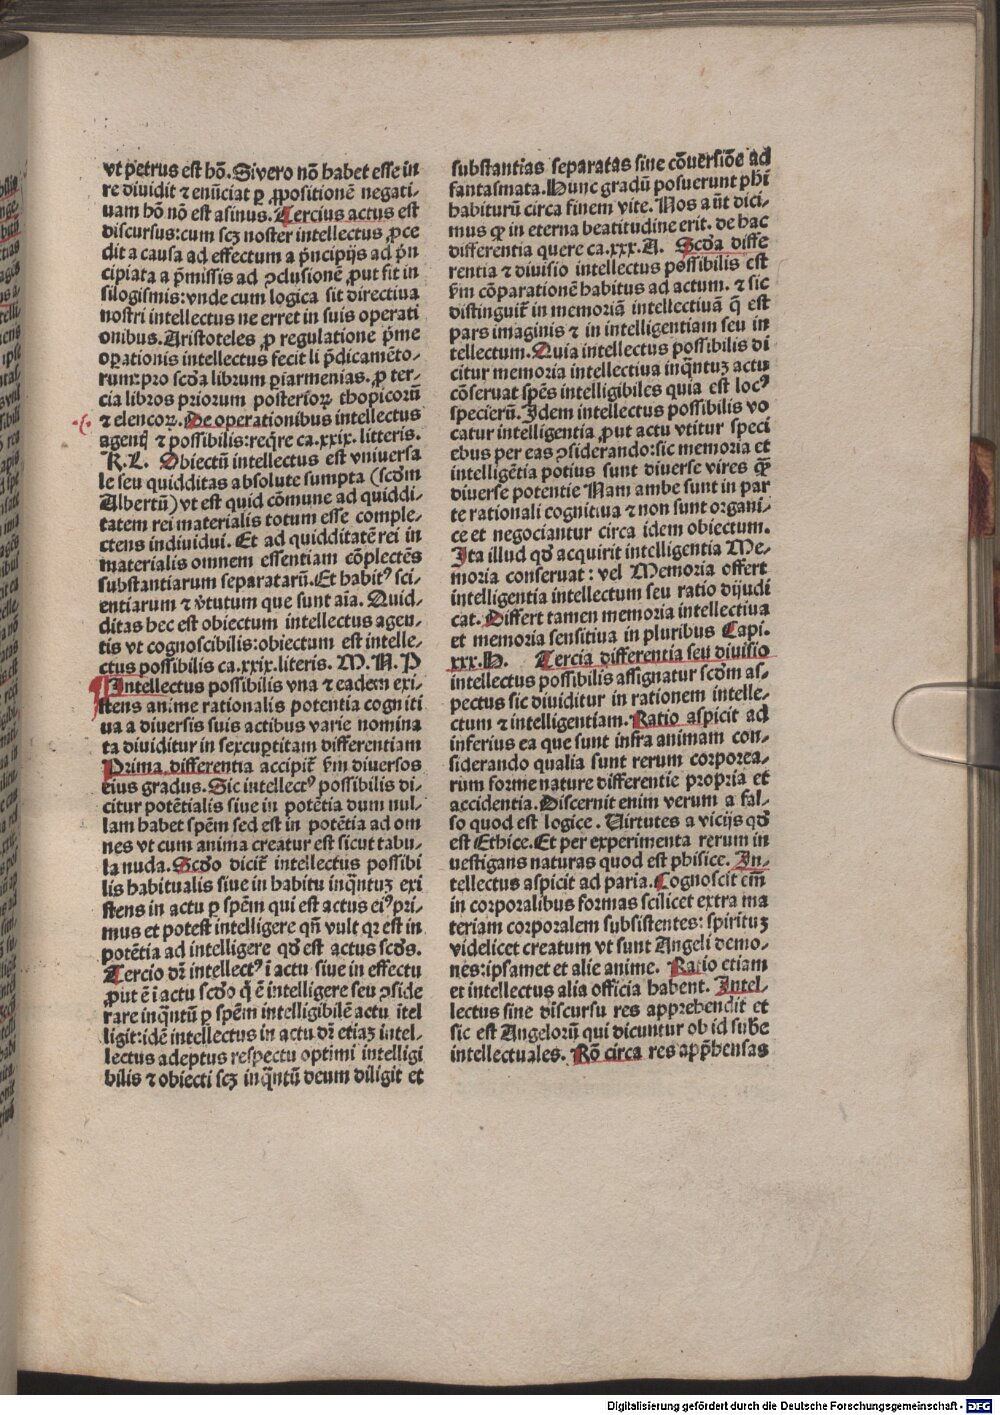 vt petrus est hō. Si vero nō habet esse in
re diuidit ⁊ enūciat ꝑ ꝓpositionē negati-
uam hō nō est asinus. Tercius actus est
discursus: cum scꝫ noster intellectus ꝓce
dit a causa ad effectum a p̄ncipijs ad p̄n
cipiata a p̄missis ad ꝯclusionē ꝓut fit in
silogismis: vnde cum logica sit directiua
nostri intellectus ne erret in suis operati
onibus. Aristoteles ꝓ regulatione p̄me
oꝑationis intellectus fecit li p̄dicamēto-
rum: pro scd̄a librum ꝑiarmenias. ꝓ ter-
cia libros priorum posterioꝝ thopicorū
⁊ elencoꝝ. De operationibus intellectus
agentꝭ ⁊ possibilis: reqͥre ca. xxix. litteris.
K. L. Obiectū intellectus est vniuersa
le seu quidditas absolute sumpta (scd̄m
Albertū) vt est quid cōmune ad quiddi-
tatem rei materialis totum esse comple-
ctens indiuidui. Et ad quidditatē rei in
materialis omnem essentiam cōplectēs
substantiarum separatarū. Et habitꝰ sci-
entiarum ⁊ v̓tutum que sunt aīa. Quid-
ditas hec est obiectum intellectus agen-
tis vt cognoscibilis: obiectum est intelle-
ctus possibilis ca. xxix. literis. M. N. P
Intellectus possibilis vna ⁊ eadem exi-
stens anime rationalis potentia cogniti
ua a diuersis suis actibus varie nomina
ta diuiditur in sexcuꝑtitam differentiam
Prima differentia accipit̄ ẜm diuersos
eius gradus. Sic intellectꝰ possibilis di-
citur potētialis siue in potētia dum nul-
lam habet spēm sed est in potētia ad om
nes vt cum anima creatur est sicut tabu-
la nuda. Scd̄o dicit̄ intellectus possibi
lis habitualis siue in habitu inqͣntuꝫ exi
stens in actu ꝑ spēm qui est actus eiꝰ pri-
mus et potest intelligere qn̄ vult qꝛ est in
potētia ad intelligere qd̄ est actus scd̄s.
Tercio dr̄ intellectꝰ ī actu siue in effectu
ꝓut ē ī actu scd̄o qͥ ē intelligere seu ꝯside
rare inqͣntū ꝑ spēm intelligibilē actu ītel
ligit: idē intellectus in actu dr̄ etiaꝫ intel-
lectus adeptus respectu optimi intelligi
bilis ⁊ obiecti scꝫ inqͣntū deum diligit et
substantias separatas sine cōuersiōe ad
fantasmata. Hunc gradū posuerunt ph̄i
habiturū circa finem vite. Nos aūt dici-
mus ꝙ in eterna beatitudine erit. de hac
differentia quere ca. xxx. A. Scd̄a diffe
rentia ⁊ diuisio intellectus possibilis est
ẜm cōparationē habitus ad actum. ⁊ sic
distinguit̄ in memoriā intellectiuā q̄ est
pars imaginis ⁊ in intelligentiam seu in
tellectum. Quia intellectus possibilis di
citur memoria intellectiua inqͣntuꝫ actu
cōseruat spēs intelligibiles quia est locꝰ
specierū. Idem intellectus possibilis vo
catur intelligentia ꝓut actu vtitur speci
ebus per eas ꝯsiderando: sic memoria et
intelligētia potius sunt diuerse vires qͣꝫ
diuerse potentie Nam ambe sunt in par
te rationali cognitiua ⁊ non sunt organi-
ce et negociantur circa idem obiectum.
Ita illud qd̄ acquirit intelligentia Me-
moria conseruat: vel Memoria offert
intelligentia intellectum seu ratio dijudi
cat. Differt tamen memoria intellectiua
et memoria sensitiua in pluribus Capi.
xxx. H. Tercia differentia seu diuisio
intellectus possibilis assignatur scd̄m as-
pectus sic diuiditur in rationem intelle-
ctum ⁊ intelligentiam. Ratio aspicit ad
inferius ea que sunt infra animam con-
siderando qualia sunt rerum corporea-
rum forme nature differentie propria et
accidentia. Discernit enim verum a fal-
so quod est logice. Virtutes a vicijs qd̄
est Ethice. Et per experimenta rerum in
uestigans naturas quod est phisice. In-
tellectus aspicit ad paria. Cognoscit em̄
in corporalibus formas scilicet extra ma
teriam corporalem subsistentes: spirituꝫ
videlicet creatum vt sunt Angeli demo-
nes: ipsamet et alie anime. Ratio etiam
et intellectus alia officia habent. Intel-
lectus sine discursu res apprehendit et
sic est Angelorū qui dicuntur ob id sub̄e
intellectuales. Rō circa res app̄hensas
Digitalisierung gefördert durch die Deutsche Forschungsgemeinschaft - DFG